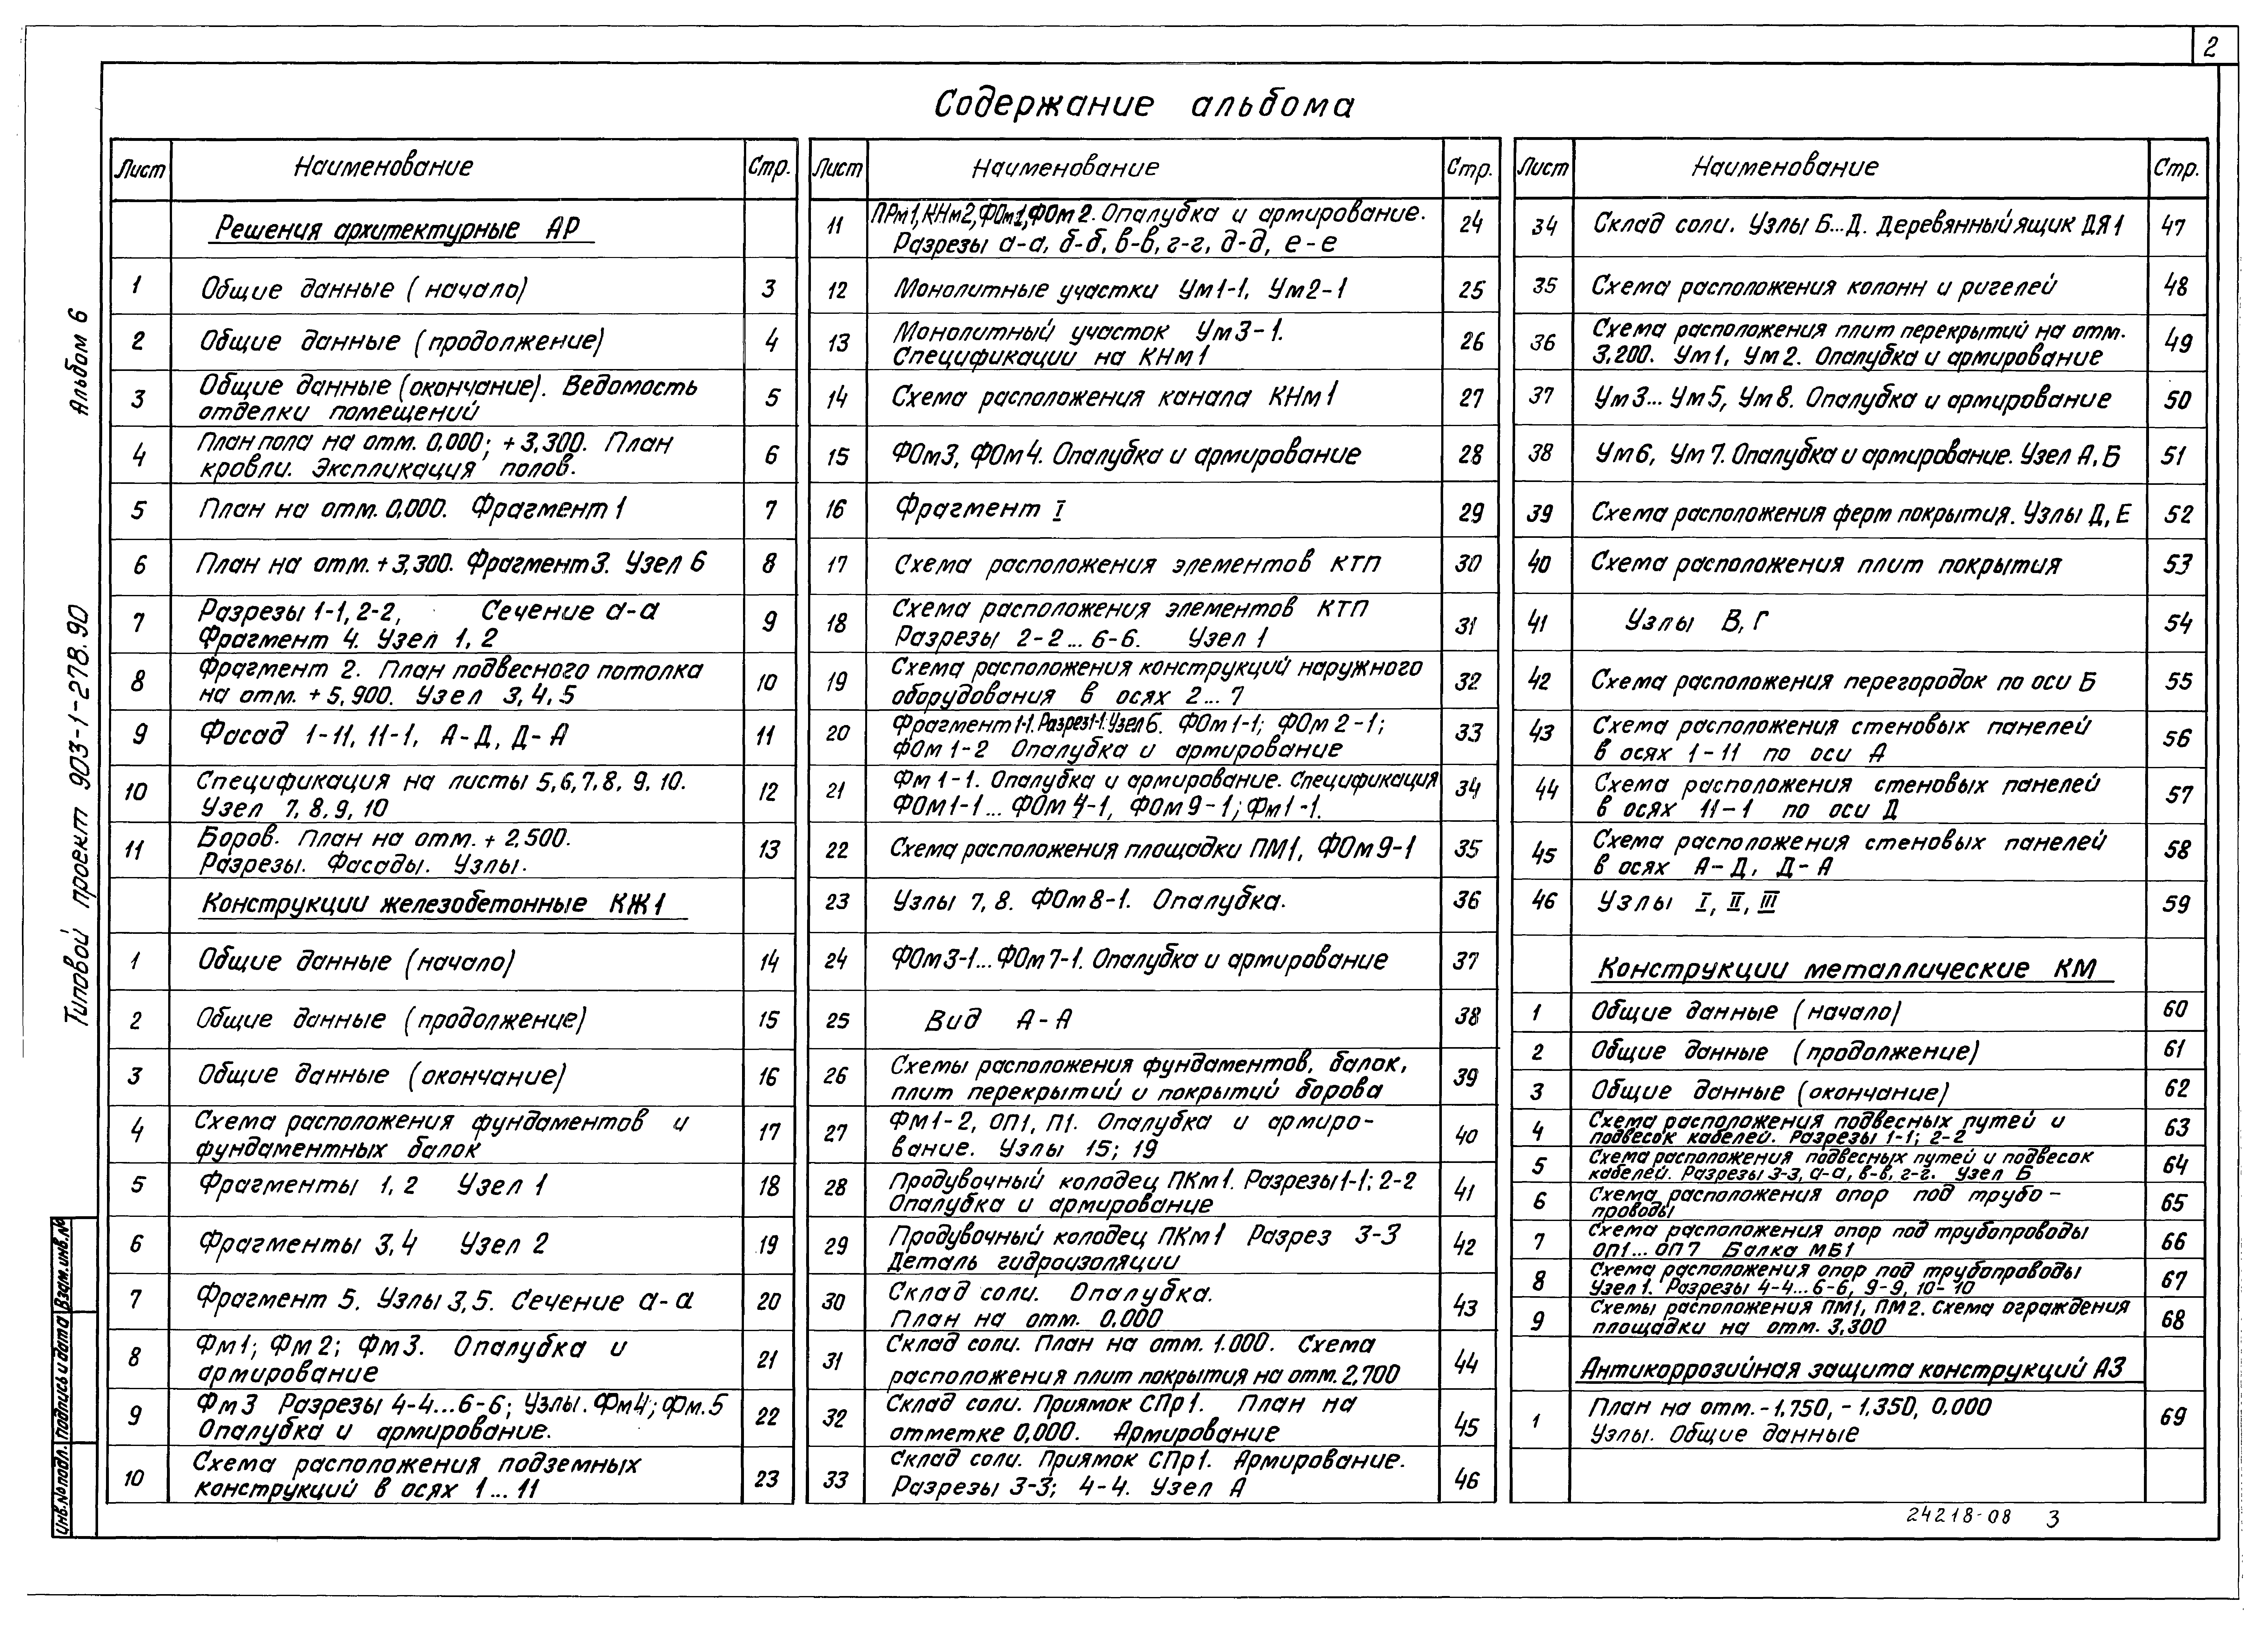 2
Содержание альбома
Лист Наименование Стр.
Решения архитектурные АР
1 Общие данные (начало) 3
2 Общие данные (продолжение) 4
3 Общие данные (окончание). Ведомость
отделки помещений 5
4 План пола на отм. 0,000; +3,300. План
кровли. Экспликация полов. 6
5 План на отм. 0,000. Фрагмент 1 7
6 План на отм. +3,300. Фрагмент 3. Узел 6 8
7 Разрезы 1-1, 2-2, Сечение а-а
Фрагмент 4. Узел 1, 2 9
8 Фрагмент 2. План подвесного потолка
на отм. +5,900. Узел 3,4,5 10
9 Фасад 1-11, 11-1, А-Д, Д-А 11
10 Спецификация на листы 5,6,7,8, 9, 10.
Узел 7,8,9,10 12
11 Боров. План на отм. + 2,500.
Разрезы. Фасады. Узлы. 13
Конструкции железобетонные КЖ1
1 Общие данные (начало) 14
2 Общие данные (продолжение) 15
3 Общие данные (окончание) 16
4 Схема расположения фундаментов и
фундаментных балок 17
5 Фрагменты 1, 2 Узел 1 18
6 Фрагменты 3,4 Узел 2 19
7 Фрагмент 5. Узлы 3,5. Сечение а-а 20
8 Фм1; Фм2; Фм3. Опалубка и
армирование 21
9 Фм3 Разрезы 4-4...6-6; Узлы. Фм4; Фм.5
Опалубка и армирование. 22
10 Схема расположения подземных
конструкций в осях 1...11 23
Лист Наименование Стр.
11 ПРм1, КНм2, ФОм1, ФОм2. Опалубка и армирование.
Разрезы а-а, б-б, в-в, г-г, д-д, е-е 24
12 Монолитные участки Ум1-1, Ум2-1 25
13 Монолитный участок Ум3-1.
Спецификации на КНм1 26
14 Схема расположения канала КНм1 27
15 ФОм3, ФОм4. Опалубка и армирование 28
16 Фрагмент I 29
17 Схема расположения элементов КТП 30
18 Схема расположения элементов КТП
Разрезы 2-2...6-6. Узел 1 31
19 Схема расположения конструкций наружного
оборудования в осях 2...7 32
20 Фрагмент 1-1. Разрез 1-1. Узел 6. ФОм1-1; ФОм2-1;
ФОм1-2 Опалубка и армирование 33
21 Фм1-1. Опалубка и армирование. Спецификация
ФОм1-1...ФОм4-1, ФОм9-1; Фм1-1. 34
22 Схема расположения площадки ПМ1, ФОм9-1 35
23 Узлы 7,8. ФОм8-1. Опалубка. 36
24 ФОм3-1...ФОм7-1. Опалубка и армирование 37
25 Вид А-А 38
26 Схемы расположения фундаментов, балок,
плит перекрытий и покрытий борова 39
27 Фм1-2, ОП1, П1. Опалубка и армиро-
вание. Узлы 15; 19 40
28 Продувочный колодец ПКм1. Разрезы 1-1; 2-2
Опалубка и армирование 41
29 Продувочный колодец ПКм1 Разрез 3-3
Деталь гидроизоляции 42
30 Склад соли. Опалубка.
План на отм. 0,000 43
31 Склад соли. План на отм. 1.000. Схема
расположения плит покрытия на отм. 2,700 44
32 Склад соли. Приямок СПр1. План на
отметке 0,000. Армирование 45
33 Склад соли. Приямок СПр1. Армирование.
Разрезы 3-3; 4-4. Узел А 46
Лист Наименование Стр.
34 Склад соли. Узлы Б...Д. Деревянный ящик ДЯ1 47
35 Схема расположения колонн и ригелей 48
36 Схема расположения плит перекрытий на отм.
3,200. Ум1, Ум2. Опалубка и армирование 49
37 Ум3...Ум5, Ум8. Опалубка и армирование 50
38 Ум6, Ум7. Опалубка и армирование. Узел А,Б 51
39 Схема расположения ферм покрытия. Узлы Д, Е 52
40 Схема расположения плит покрытия 53
41 Узлы В, Г 54
42 Схема расположения перегородок по оси Б 55
43 Схема расположения стеновых панелей
в осях 1-11 по оси А 56
44 Схема расположения стеновых панелей
в осях 11-1 по оси Д 57
45 Схема расположения стеновых панелей
в осях А-Д, Д-А 58
46 Узлы I, II, III 59
Конструкции металлические КМ
1 Общие данные (начало) 60
2 Общие данные (продолжение) 61
3 Общие данные (окончание) 62
4 Схема расположения подвесных путей и
подвесок кабелей. Разрезы 1-1; 2-2 63
5 Схема расположения подвесных путей и подвесок
кабелей. Разрезы 3-3, а-а, в-в, г-г. Узел Б 64
6 Схема расположения опор под трубо-
проводы 65
7 Схема расположения опор под трубопроводы
ОП1...ОП7 Балка МБ1 66
8 Схема расположения опор под трубопроводы
Узел 1. Разрезы 4-4...6-6, 9-9, 10-10 67
9 Схемы расположения ПМ1, ПМ2. Схема ограждения
площадки на отм. 3,300 68
Антикоррозийная защита конструкций АЗ
1 План на отм. -1,750, -1,350, 0,000
Узлы. Общие данные 69
24218-08 3
Альбом 6
Типовой проект 903-1-278.90
Взам.инв.№
Подпись и дата
Инв.№ подл.